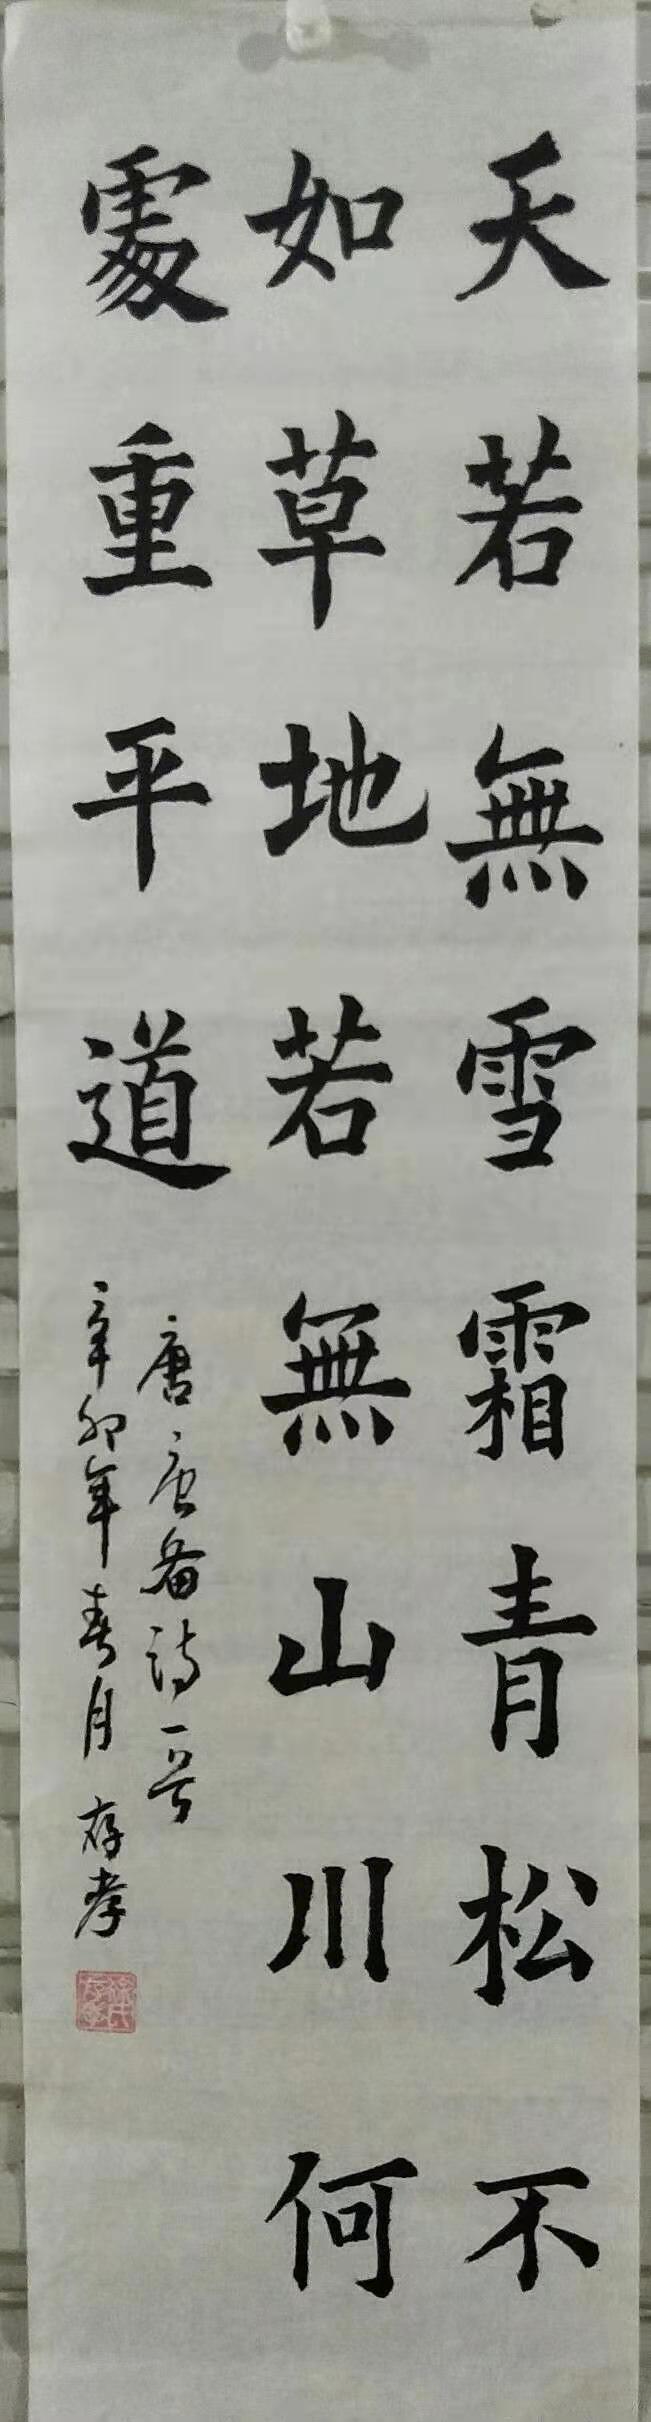 天若無雪霜青松不
如草地若無山川何
處重平道
唐唐备詩一首
辛卯年春月 存孝